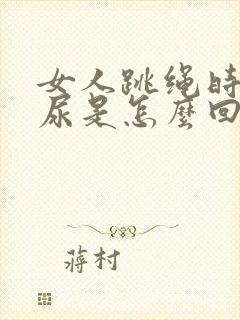 女人跳绳时
尿是怎麼回
蔣村